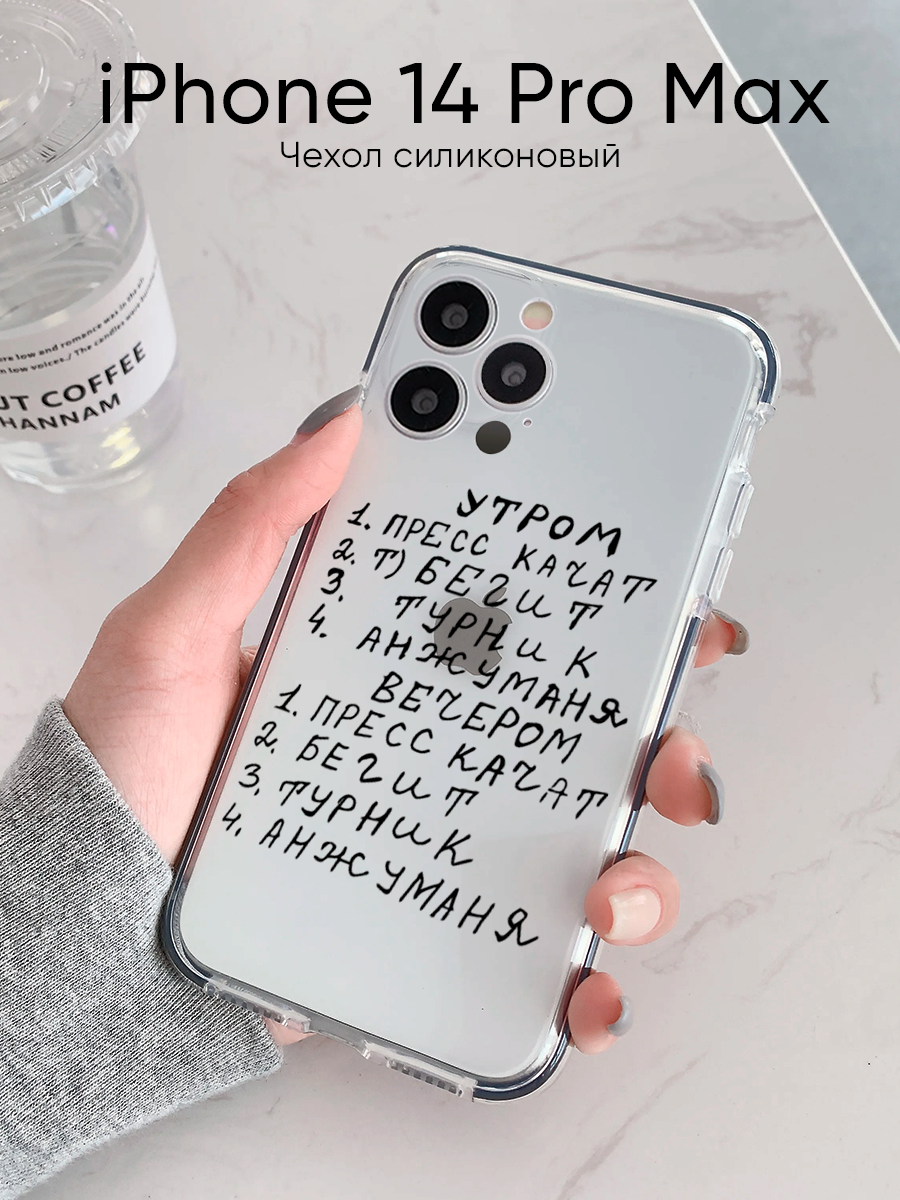 iPhone 14 Pro Max
Чехол силиконовый
ere low and romance was in the air.
n low voices./ The candles were
UT COFFEE
HANNAM
УТРОМ
1. ПРЕСС КАЧАТ
2. Т) БЕГИТ
3. ТУРНИК
4. АНЖУМАНЯ
ВЕЧЕРОМ
1. ПРЕСС КАЧАТ
2. БЕГИТ
3. ТУРНИК
4. АНЖУМАНЯ